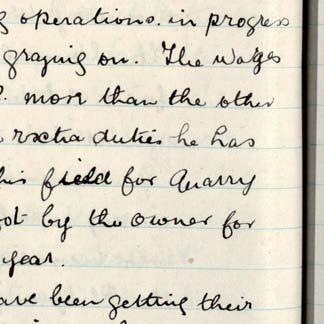 operations. in progress
graging on. The Wages
more than the other
rxtra duties he has
his field for Quarry
by the owner for
year.
have been getting their